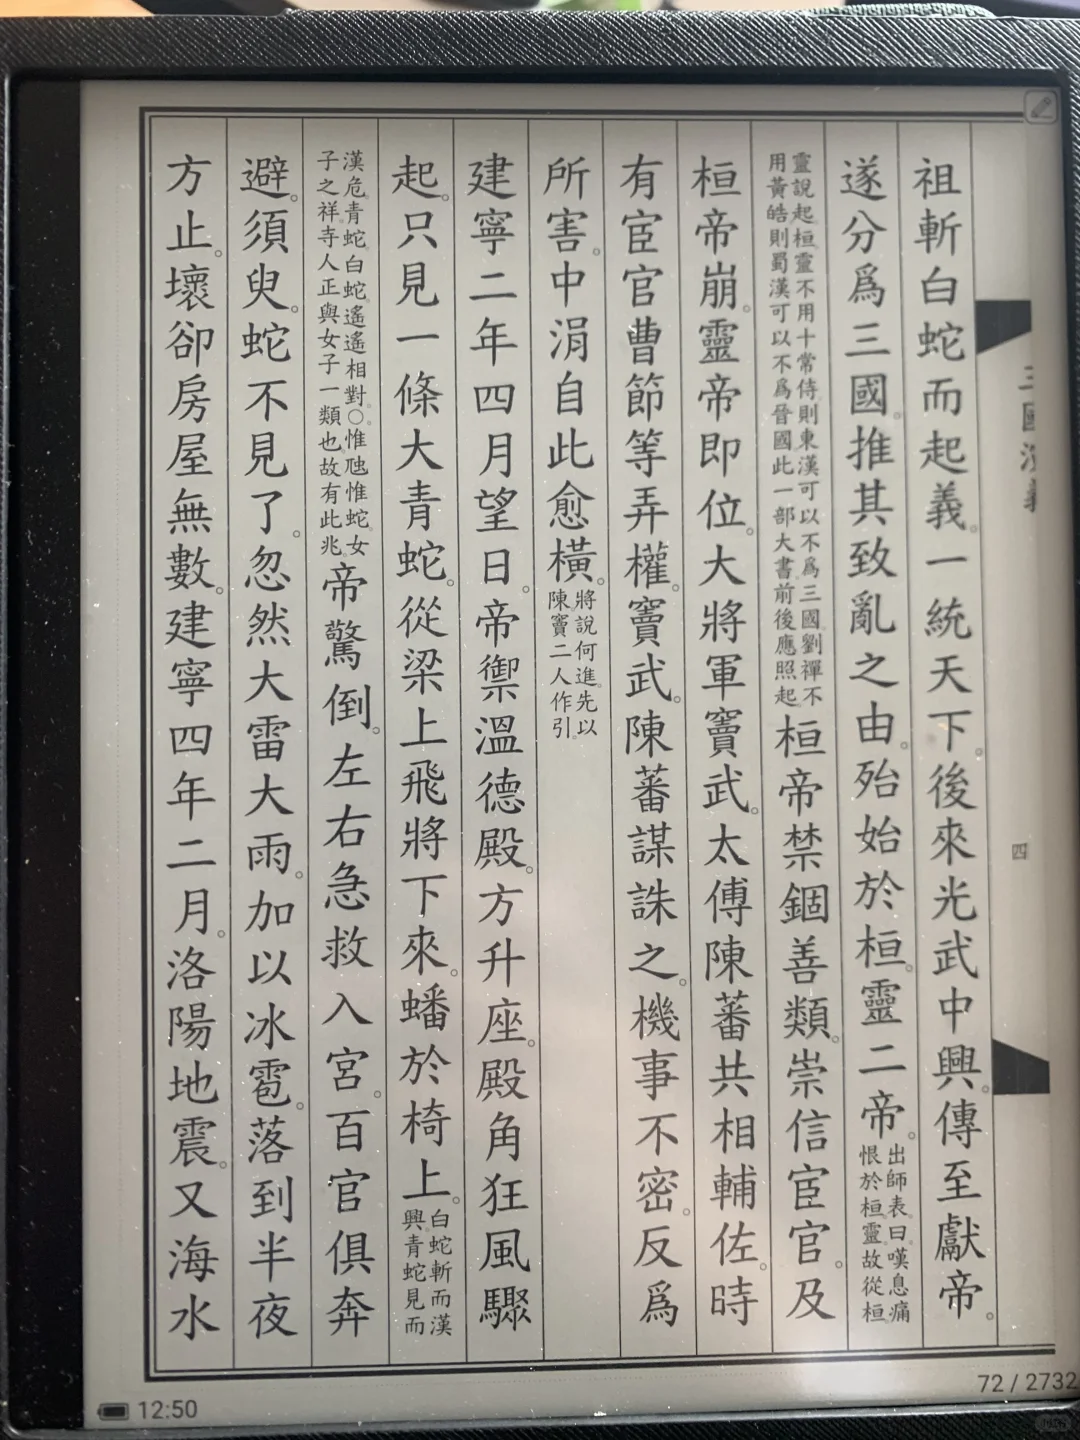 三國演義
四
祖斬白蛇而起義。一統天下。後來光武中興。傳至獻帝。
遂分爲三國。推其致亂之由。殆始於桓靈二帝。出師表曰。嘆息痛恨於桓靈。故從桓
靈說起。桓靈不用十常侍則東漢可以不爲三國劉禪不用黃皓則蜀漢可以不爲晉國此一部大書前後應照起桓帝禁錮善類。崇信宦官。及
桓帝崩。靈帝即位。大將軍竇武。太傅陳蕃共相輔佐。時
有宦官曹節等弄權。竇武。陳蕃謀誅之。機事不密。反爲
所害。中涓自此愈橫。將說何進。先以陳竇二人作引。
建寧二年四月望日。帝禦溫德殿。方升座。殿角狂風驟
起。只見一條大青蛇。從梁上飛將下來。蟠於椅上。白蛇斬而漢興青蛇見而
漢危。青蛇白蛇遙遙相對。○惟虺惟蛇。女子之祥。寺人正與女子一類也。故有此兆。帝驚倒。左右急救入宮。百官俱奔
避。須臾。蛇不見了。忽然大雷大雨。加以冰雹。落到半夜
方止。壞卻房屋無數。建寧四年二月。洛陽地震。又海水
72 / 2732
12:50